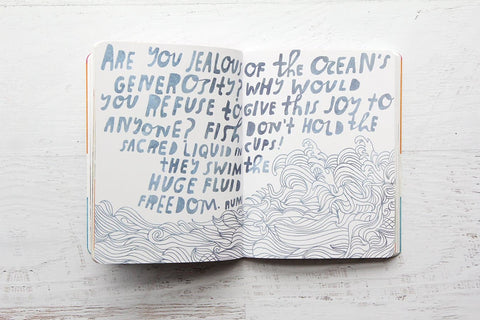 ARE YOU JEALOUS OF the OCEAN'S
GENEROSITY? WHY WOULD
YOU REFUSE to GIVE this JOY to
ANYONE? FISH DON't HOLD the
SACRED LIQUID IN CUPS!
tHEY SWIM the
HUGE FLUID
FREEDOM. RUMI